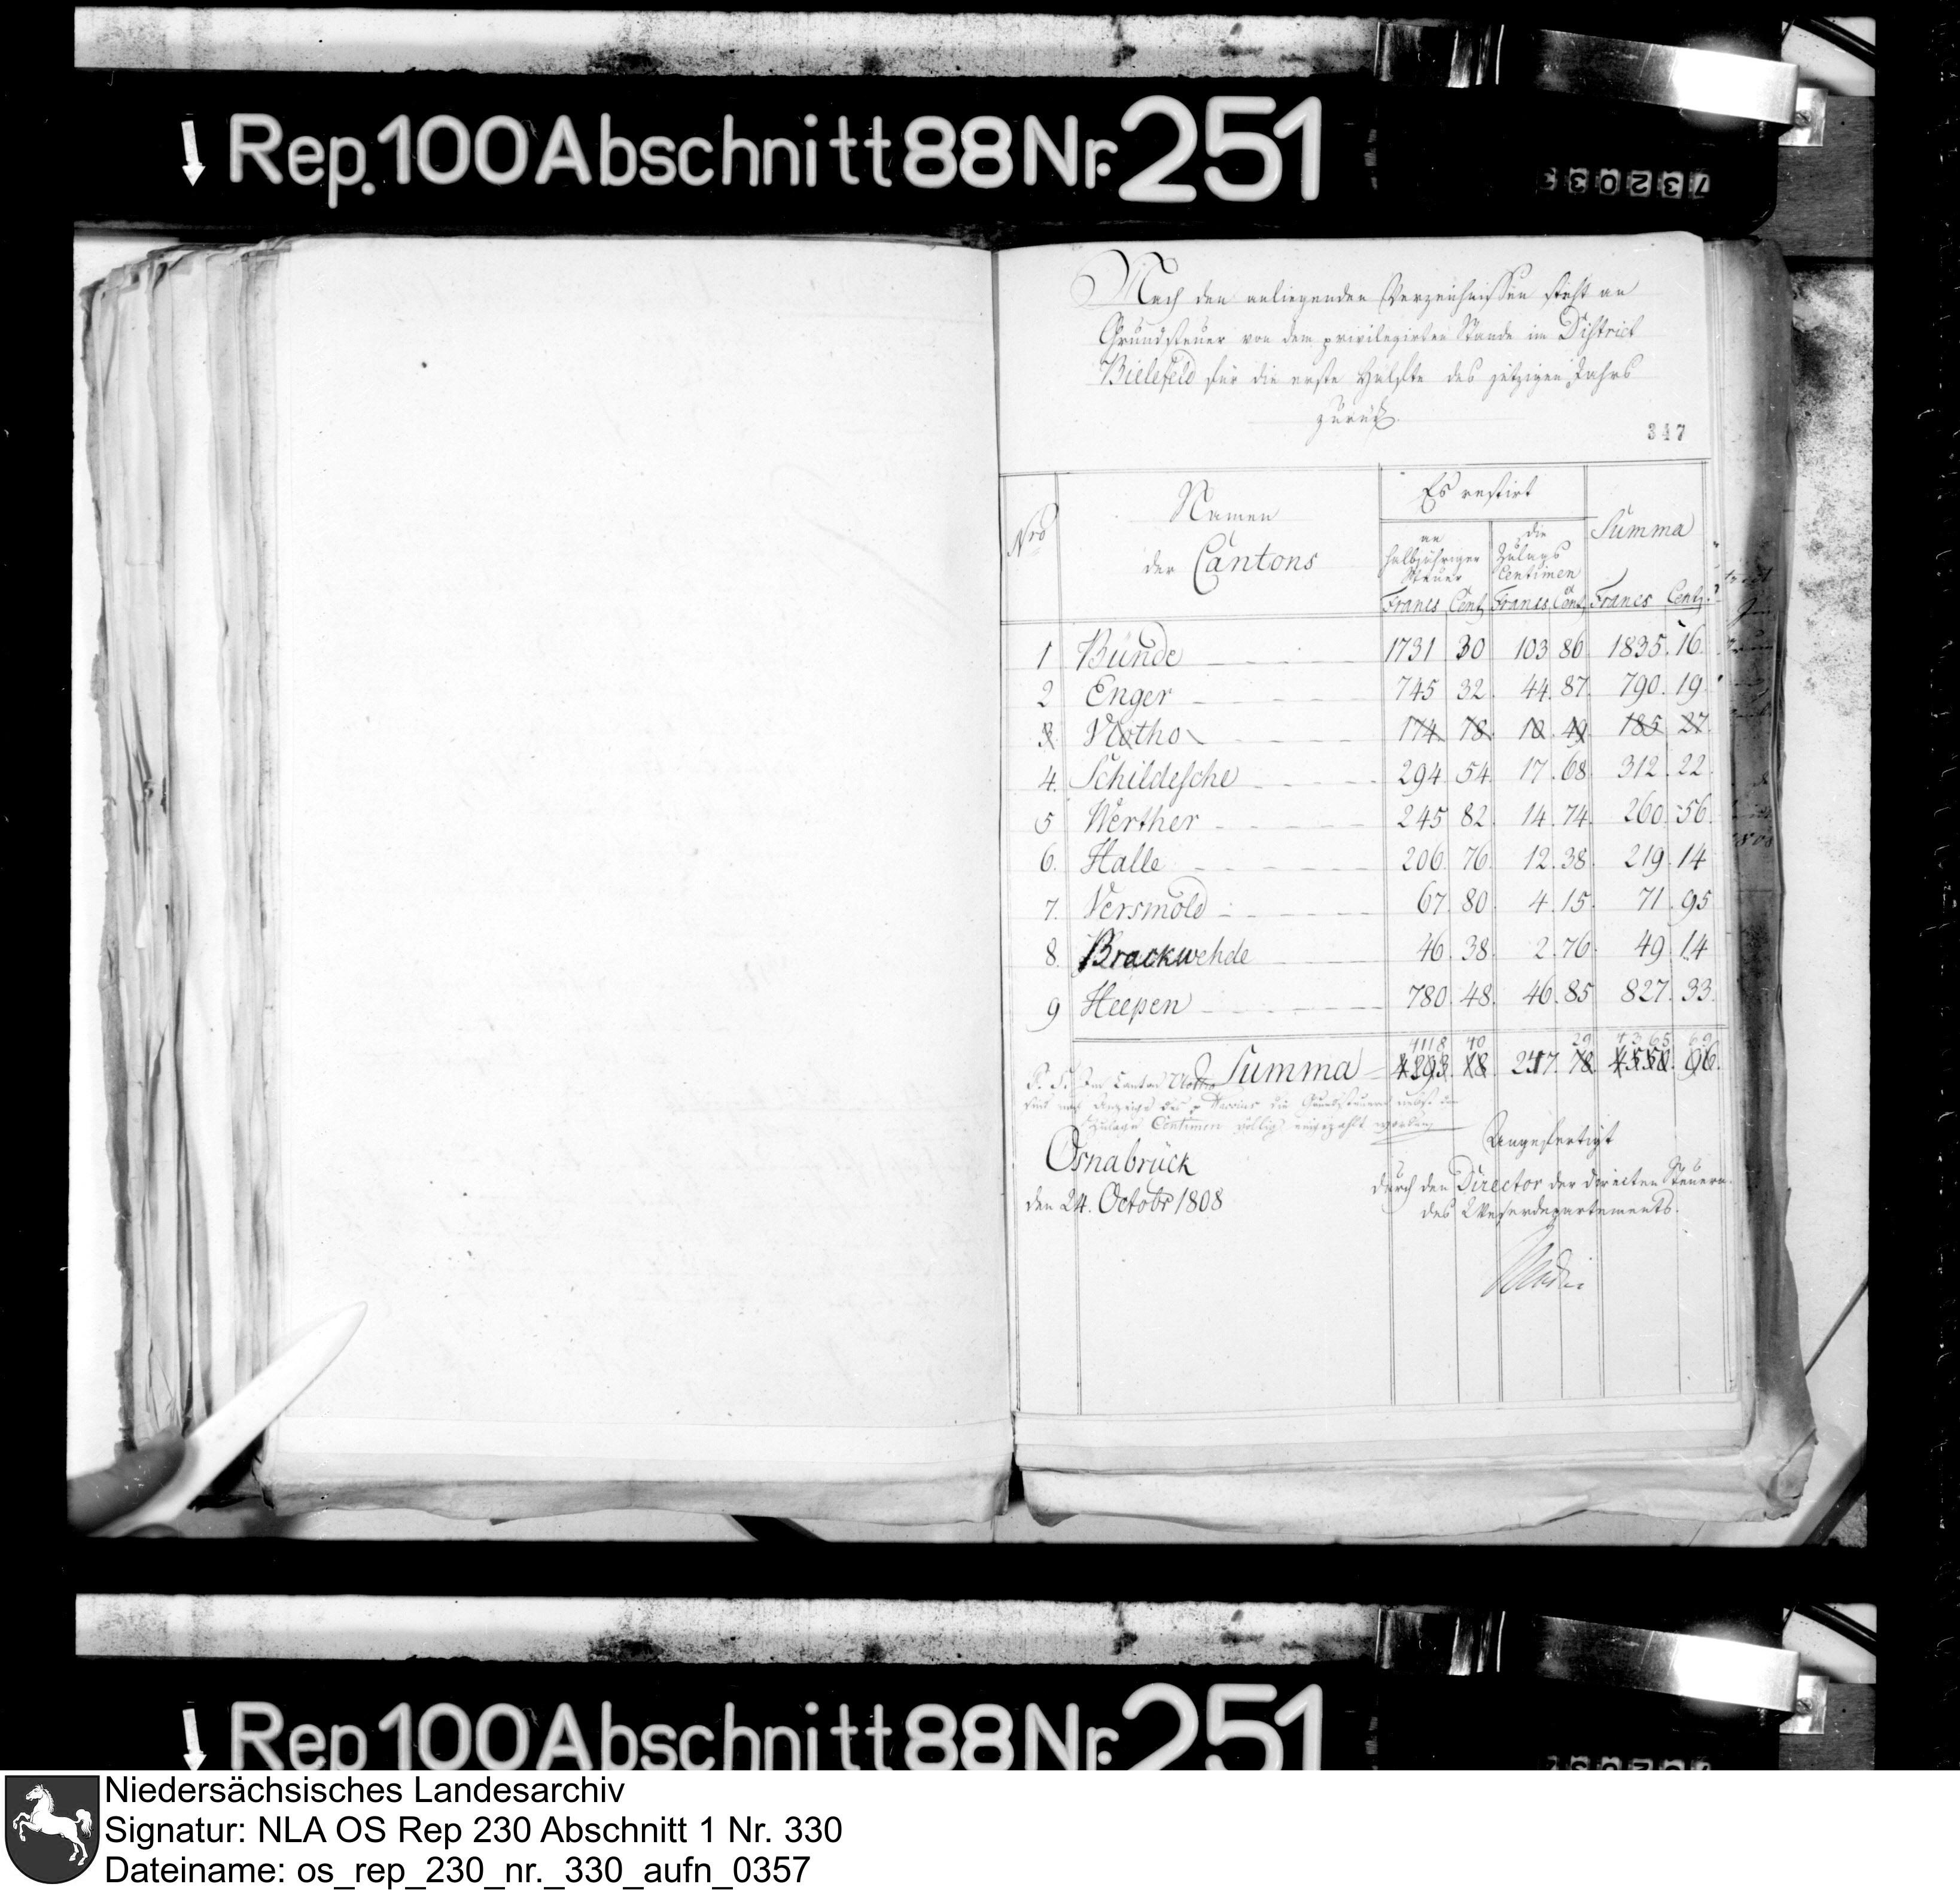 Rep. 100 Abschnitt 88 Nr. 251
732033
Nach den anliegenden Verzeichnissen steht an
Grundsteuer von dem privilegirten Stande im District
Bielefeld für die erste Hälfte des jetzigen Jahrs
zurück.
347
Nro
Namen
der Cantons
Es restirt
an halbjähriger Steuer
die Zulags Centimen
Summa
Francs Cent Francs Cent Francs Cent
1 Bünde 1731 30 103 86 1835. 16.
2 Enger 745 32. 44. 87. 790. 19
3. Vlotho 174 78. 10 49 185 27.
4. Schildesche 294. 54. 17. 68. 312. 22.
5 Werther 245 82. 14. 74. 260. 56.
6. Halle 206. 76. 12. 38. 219. 14
7. Versmold 67. 80. 4. 15. 71. 95
8. Brackwehde 46. 38. 2. 76. 49. 14
9 Heepen 780. 48. 46. 85. 827. 33.
4118 40 29 4365 69
Summa 4293 18 247. 78. 4550 96.
Im Canton Vlotho
sind nach Anzeige des die Grundsteuern nebst den
Zulags Centimen völlig eingezahlt worden
Osnabrück
den 24. Octobr 1808
Angefertigt
durch den Director der directen Steuern
des Weserdepartements.
Rep 100 Abschnitt 88 Nr. 251
Niedersächsisches Landesarchiv
Signatur: NLA OS Rep 230 Abschnitt 1 Nr. 330
Dateiname: os_rep_230_nr._330_aufn_0357